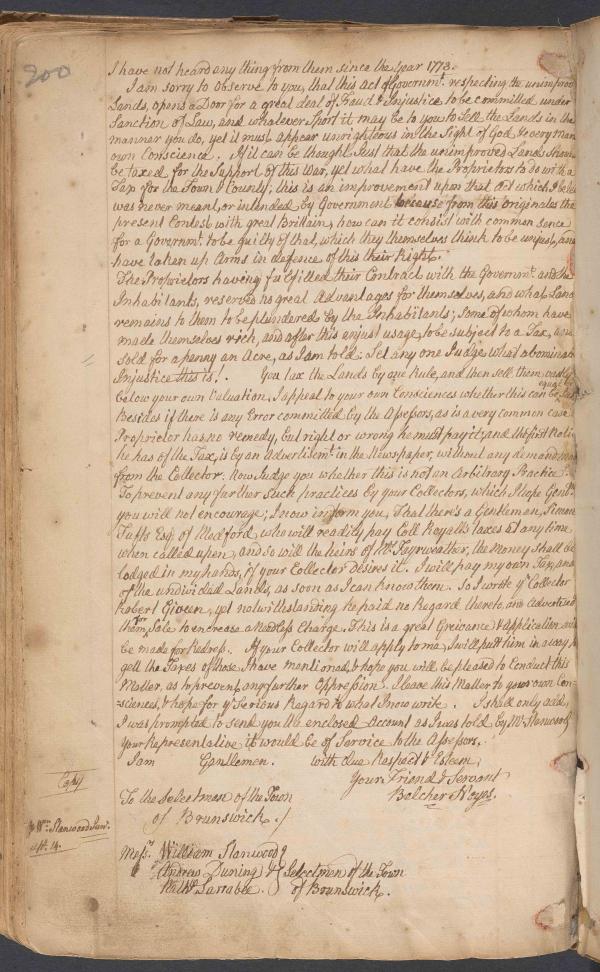 200
I have not heard any thing from them since the Year 1773.
I am sorry to observe to you, that this Act of Governmt. respecting the unimprov
Lands, opens a Door for a great deal of Fraud & Injustice to be committed under
Sanction of Law, and whatever Sport it may be to you to Sell the Lands in the
manner you do, yet it must appear unrighteous in the Sight of God, & every Man
own Conscience. If it can be thought Just that the unimproved Lands should
be taxed for the Support of this War, yet what have the Proprietors to do with a
Tax for the Town & County; this is an improvement upon that Act which I
was never meant, or intended by Government because from this originates the
present Contest with great Brittain, how can it consist with common sence
for a Governmt. to be guilty of that, which they themselves think to be unjust, and
have taken up Arms in defence of this their Right.
The Proprietors having fulfilled their Contract with the Governmt. and the
Inhabitants, reserves no great Advantages for themselves, and what Land
remains to them to be plundered by the Inhabitants; Some of whom have
made themselves rich, and after this unjust usage, to be subject to a Tax, and
sold for a penny an Acre, as I am told: Let any one Judge what abominab
Injustice this is! You tax the Lands by one Rule, and then sell them vastly
below your own Valuation, I appeal to your own Consciences whether this can be
Besides if there is any Error committed by the Assessors, as is a very common case
Proprietor has no remedy, but right or wrong he must pay it; and the first Noti
he has of the Tax, is by an Advertismt. in the Newspaper, without any demand
from the Collector. Now Judge you whether this is not an Arbitrary Practice.
To prevent any further such practices by your Collectors, which I hope Gentn.
you will not encourage; I now inform you, That there's a Gentleman, Simon
Tufts Esq. of Medford, who will readily pay Coll Royalls taxes at any time
when called upon, and so will the heirs of Mr. Fayrweather, the Money shall be
lodged in my hands, if your Collector desires it. I will pay my own Tax, and
of the undivided Lands, as soon as I can know them. So I wrote yr. Collector
Robert Giveen, yet notwithstanding he paid no Regard thereto, and Advertised
them for Sale to encrease a needless Charge. This is a great Greivance & application
be made for Redress. If your Collector will apply to me, I will putt him in a way to
gett the Taxes of those, I have mentioned, & hope you will be pleased to Conduct this
Matter, as to prevent any further Oppression. I leave this Matter to your own Con-
=sciences, & hope for yr. Serious Regard to what I now write. I shall only add,
I was prompted to send you the enclosed Account as I was told, by Mr. Stanwood
your Representative it would be of Service to the Assessors.
I am Gentlemen. with due Respect & Esteem,
Your Friend & Servant
Belcher Noyes.
Copy
To the Selectmen of the Town
of Brunswick.
Wm. Stanwood Junr.
Sept. 14.
Messrs. William Stanwood
Andrew Duning Selectmen of the Town
Nathl. Larrabee. of Brunswick.